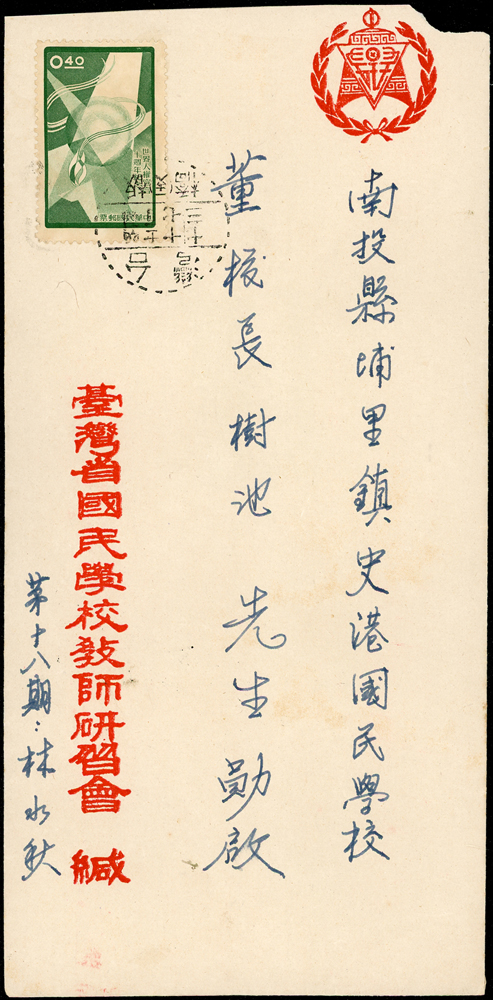 南投縣埔里鎮史港國民學校
董校長樹池 先生 勛啟
臺灣省國民學校教師研習會 緘
第十八期:林水秋
0.40
世界人權宣言十週年紀念
中華民國郵票
台灣